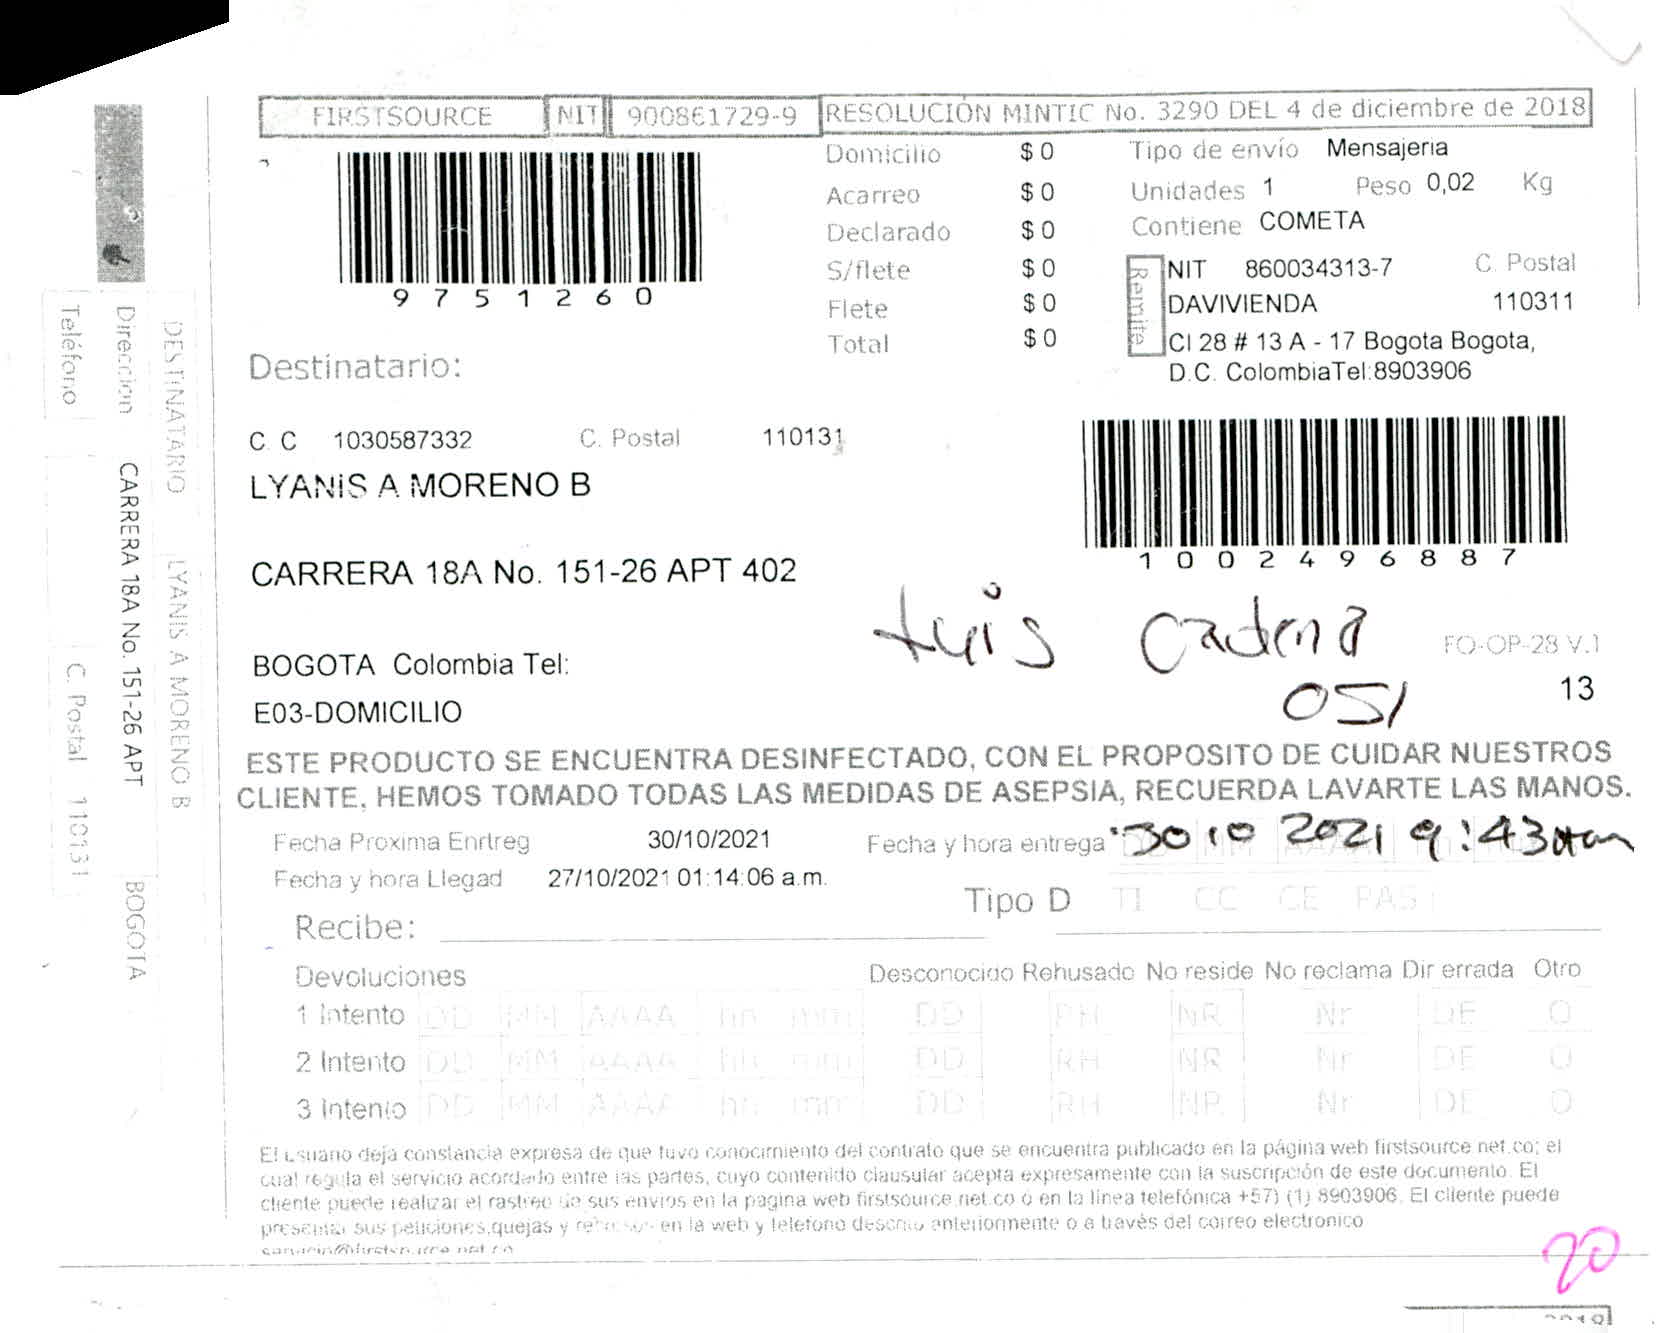 FIRSTSOURCE NIT 900861729-9 RESOLUCIÓN MINTIC No. 3290 DEL 4 de diciembre de 2018
9751260
Domicilio $ 0
Acarreo $ 0
Declarado $ 0
S/flete $ 0
Flete $ 0
Total $ 0
Tipo de envío Mensajeria
Unidades 1 Peso 0,02 Kg
Contiene COMETA
Remite
NIT 860034313-7 C. Postal
DAVIVIENDA 110311
Cl 28 # 13 A - 17 Bogota Bogota,
D.C. ColombiaTel:8903906
Destinatario:
C. C 1030587332 C. Postal 110131
LYANIS A MORENO B
1002496887
CARRERA 18A No. 151-26 APT 402
Luis Cadena
FO-OP-28 V.1
BOGOTA Colombia Tel:
051
13
E03-DOMICILIO
ESTE PRODUCTO SE ENCUENTRA DESINFECTADO, CON EL PROPOSITO DE CUIDAR NUESTROS
CLIENTE, HEMOS TOMADO TODAS LAS MEDIDAS DE ASEPSIA, RECUERDA LAVARTE LAS MANOS.
Fecha Proxima Enrtreg 30/10/2021 Fecha y hora entrega 30 10 2021 9:43
Fecha y hora Llegad 27/10/2021 01:14:06 a.m.
Tipo D TI CC CE PAS
Recibe:
Devoluciones Desconocido Rehusado No reside No reclama Dir errada Otro
1 Intento DD MM AAAA hh mm DD RH NR Nr DE O
2 Intento DD MM AAAA hh mm DD RH NR Nr DE O
3 Intento DD MM AAAA hh mm DD RH NR Nr DE O
El usuario deja constancia expresa de que tuvo conocimiento del contrato que se encuentra publicado en la página web firstsource.net.co; el
cual regula el servicio acordado entre las partes, cuyo contenido clausular acepta expresamente con la suscripción de este documento. El
cliente puede realizar el rastreo de sus envios en la pagina web firstsource.net.co o en la línea telefónica +57) (1) 8903906. El cliente puede
presentar sus peticiones,quejas y en la web y telefono descrito anteriormente o a través del correo electronico
servicio@firstsource.net.co
20
DESTINATARIO LYANIS A MORENO B
Direccion CARRERA 18A No. 151-26 APT BOGOTA
Teléfono C. Postal 110131